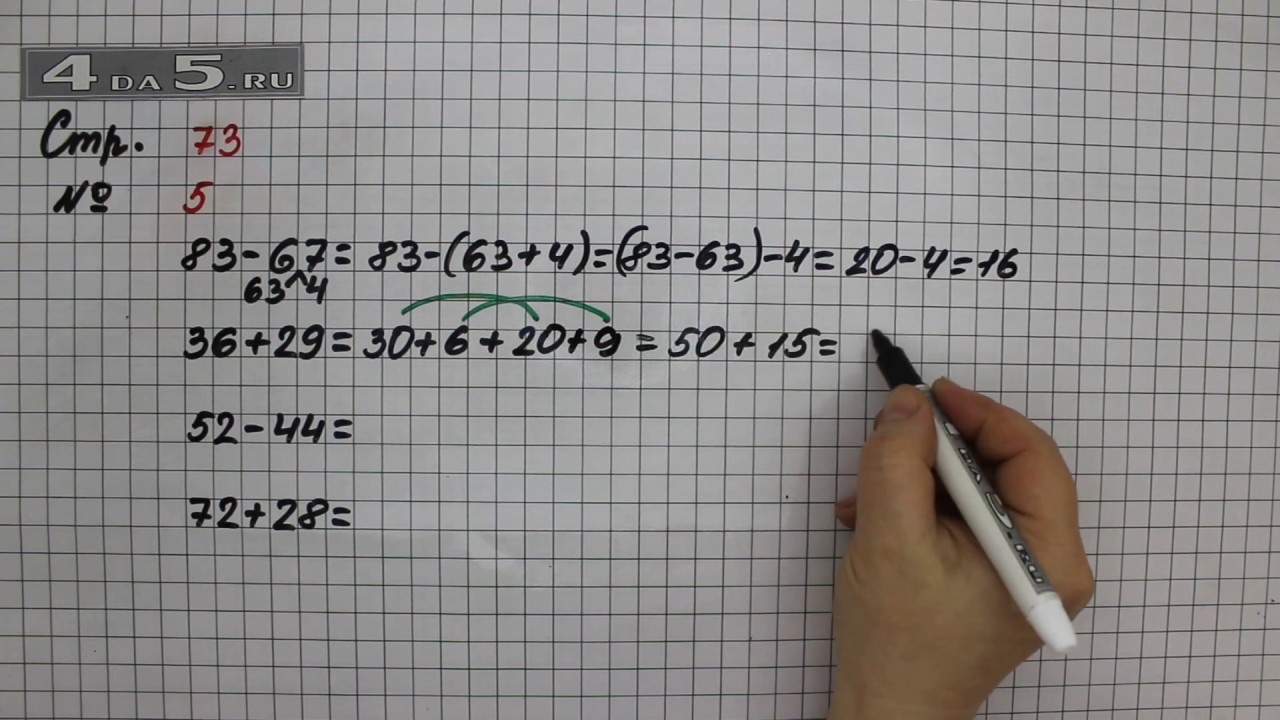 4 DA 5.RU
Стр. 73
№ 5
83-67= 83-(63+4)=(83-63)-4= 20-4=16
63^4
36+29= 30+6+20+9 = 50+15=
52-44=
72+28=